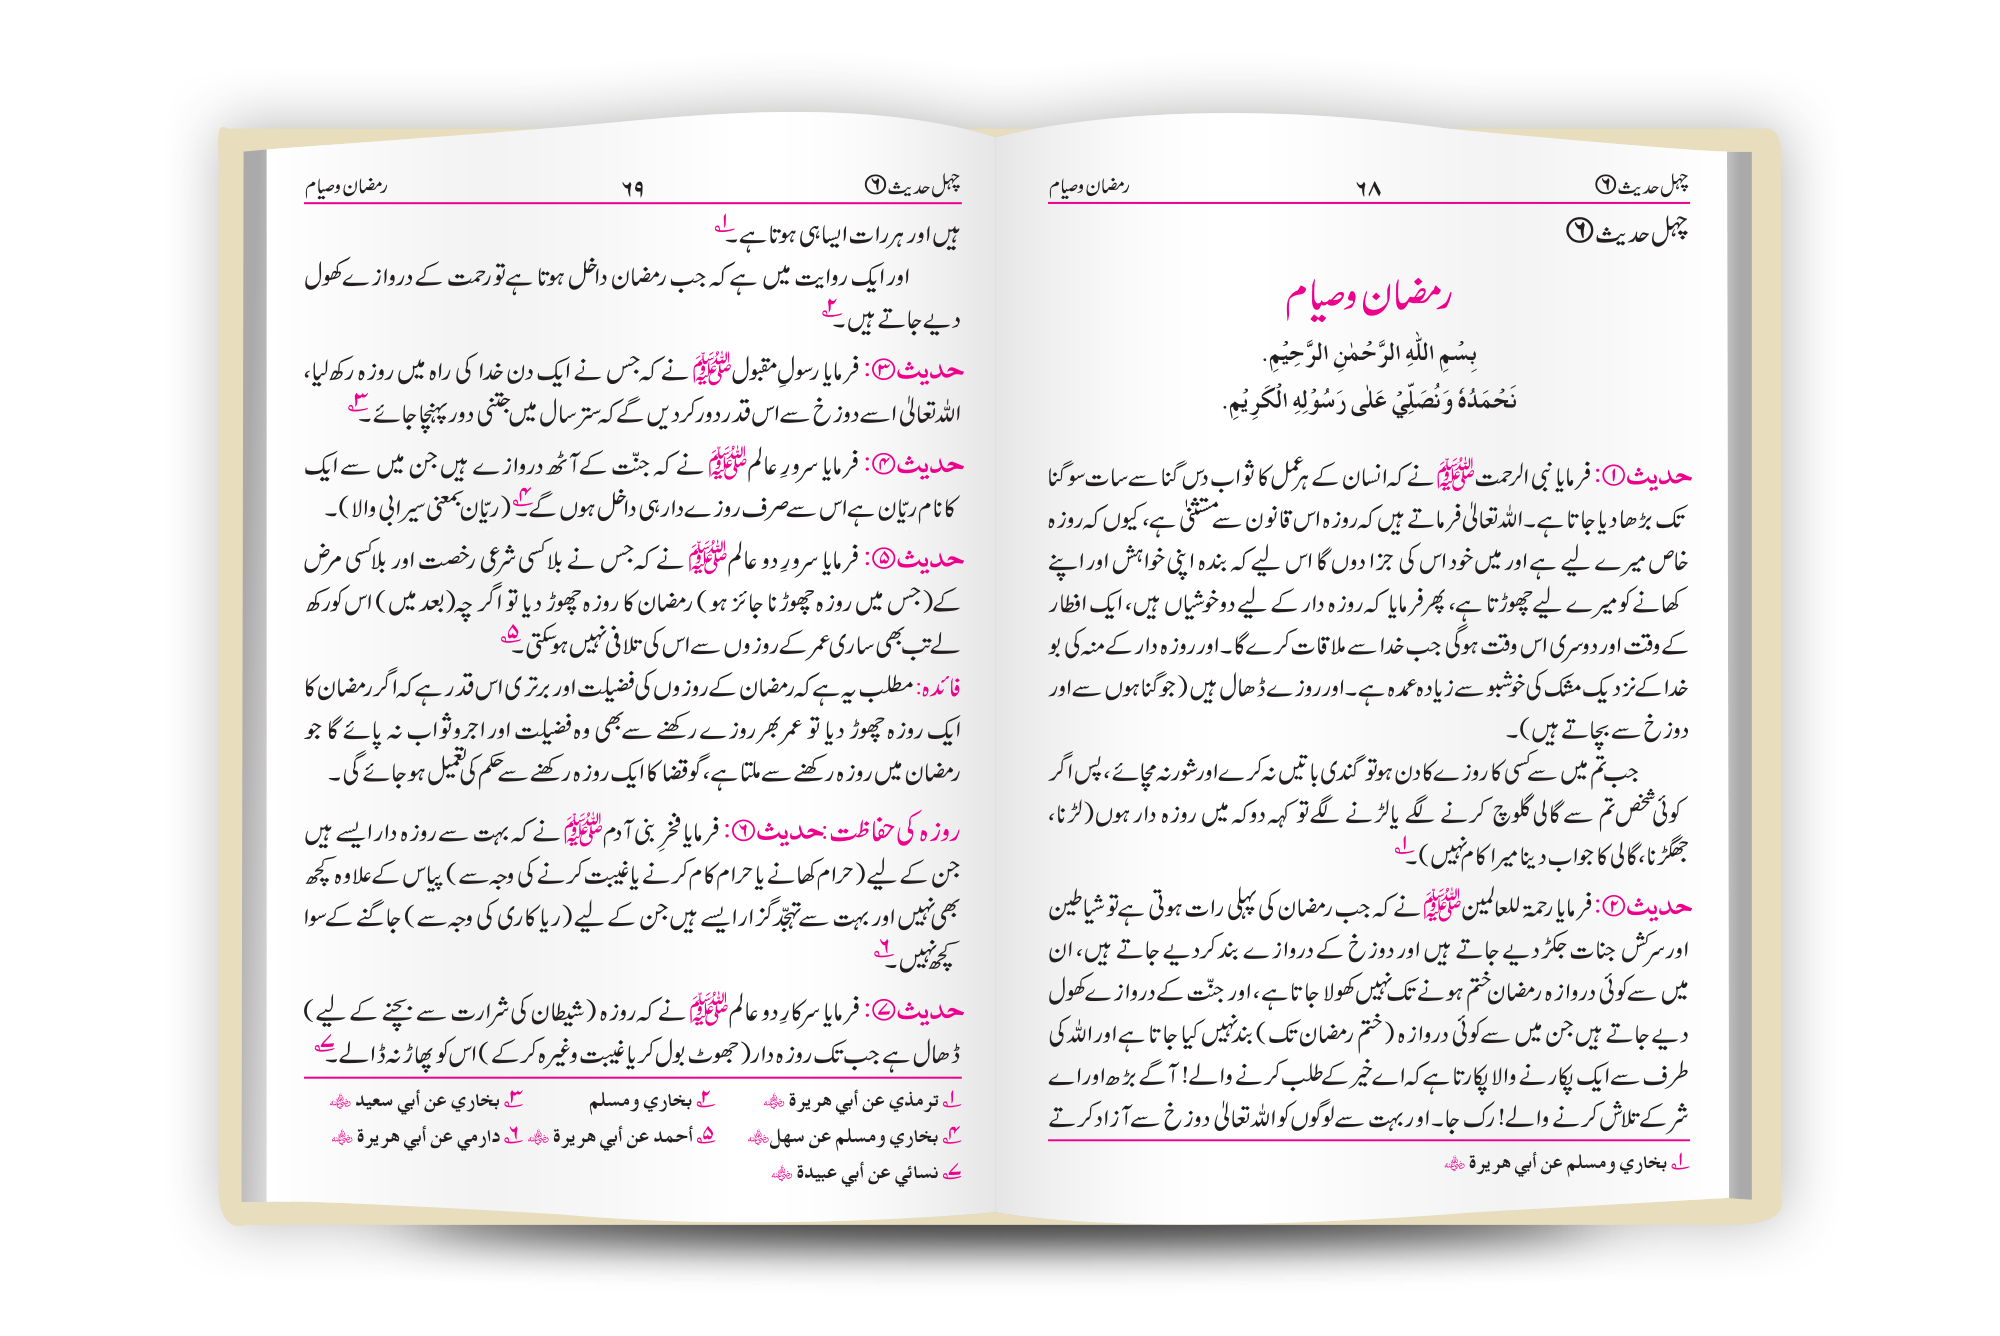 چہل حدیث ۶ ۶۸ رمضان وصیام
چہل حدیث ۶
رمضان وصیام
بِسْمِ اللهِ الرَّحْمٰنِ الرَّحِيْمِ.
نَحْمَدُهٗ وَنُصَلِّيْ عَلٰى رَسُوْلِهِ الْكَرِيْمِ.
حدیث ۱: فرمایا نبی الرحمت ﷺ نے کہ انسان کے ہر عمل کا ثواب دس گنا سے سات سو گنا
تک بڑھا دیا جاتا ہے۔ اللہ تعالیٰ فرماتے ہیں کہ روزہ اس قانون سے مستثنیٰ ہے، کیوں کہ روزہ
خاص میرے لیے ہے اور میں خود اس کی جزا دوں گا اس لیے کہ بندہ اپنی خواہش اور اپنے
کھانے کو میرے لیے چھوڑتا ہے، پھر فرمایا کہ روزہ دار کے لیے دو خوشیاں ہیں، ایک افطار
کے وقت اور دوسری اس وقت ہوگی جب خدا سے ملاقات کرے گا۔ اور روزہ دار کے منہ کی بو
خدا کے نزدیک مشک کی خوشبو سے زیادہ عمدہ ہے۔ اور روزے ڈھال ہیں (جو گناہوں سے اور
دوزخ سے بچاتے ہیں)۔
جب تم میں سے کسی کا روزے کا دن ہو تو گندی باتیں نہ کرے اور شور نہ مچائے، پس اگر
کوئی شخص تم سے گالی گلوچ کرنے لگے یا لڑنے لگے تو کہہ دو کہ میں روزہ دار ہوں (لڑنا،
جھگڑنا، گالی کا جواب دینا میرا کام نہیں)۔ ۱؎
حدیث ۲: فرمایا رحمۃ للعالمین ﷺ نے کہ جب رمضان کی پہلی رات ہوتی ہے تو شیاطین
اور سرکش جنات جکڑ دیے جاتے ہیں اور دوزخ کے دروازے بند کر دیے جاتے ہیں، ان
میں سے کوئی دروازہ رمضان ختم ہونے تک نہیں کھولا جاتا ہے، اور جنّت کے دروازے کھول
دیے جاتے ہیں جن میں سے کوئی دروازہ (ختم رمضان تک) بند نہیں کیا جاتا ہے اور اللہ کی
طرف سے ایک پکارنے والا پکارتا ہے کہ اے خیر کے طلب کرنے والے! آگے بڑھ اور اے
شر کے تلاش کرنے والے! رک جا۔ اور بہت سے لوگوں کو اللہ تعالیٰ دوزخ سے آزاد کرتے
۱؎ بخاري ومسلم عن أبي هريرة رضی اللہ عنہ
چہل حدیث ۶ ۶۹ رمضان وصیام
ہیں اور ہر رات ایسا ہی ہوتا ہے۔ ۱؎
اور ایک روایت میں ہے کہ جب رمضان داخل ہوتا ہے تو رحمت کے دروازے کھول
دیے جاتے ہیں۔ ۲؎
حدیث ۳: فرمایا رسولِ مقبول ﷺ نے کہ جس نے ایک دن خدا کی راہ میں روزہ رکھ لیا،
اللہ تعالیٰ اسے دوزخ سے اس قدر دور کر دیں گے کہ ستر سال میں جتنی دور پہنچا جائے۔ ۳؎
حدیث ۴: فرمایا سرورِ عالم ﷺ نے کہ جنّت کے آٹھ دروازے ہیں جن میں سے ایک
کا نام ریّان ہے اس سے صرف روزے دار ہی داخل ہوں گے۔ ۴؎ (ریّان بمعنی سیرابی والا)۔
حدیث ۵: فرمایا سرورِ دو عالم ﷺ نے کہ جس نے بلا کسی شرعی رخصت اور بلا کسی مرض
کے (جس میں روزہ چھوڑنا جائز ہو) رمضان کا روزہ چھوڑ دیا تو اگر چہ (بعد میں) اس کو رکھ
لے تب بھی ساری عمر کے روزوں سے اس کی تلافی نہیں ہو سکتی۔ ۵؎
فائدہ: مطلب یہ ہے کہ رمضان کے روزوں کی فضیلت اور برتری اس قدر ہے کہ اگر رمضان کا
ایک روزہ چھوڑ دیا تو عمر بھر روزے رکھنے سے بھی وہ فضیلت اور اجر و ثواب نہ پائے گا جو
رمضان میں روزہ رکھنے سے ملتا ہے، گو قضا کا ایک روزہ رکھنے سے حکم کی تعمیل ہو جائے گی۔
روزہ کی حفاظت: حدیث ۶: فرمایا فخرِ بنی آدم ﷺ نے کہ بہت سے روزہ دار ایسے ہیں
جن کے لیے (حرام کھانے یا حرام کام کرنے یا غیبت کرنے کی وجہ سے) پیاس کے علاوہ کچھ
بھی نہیں اور بہت سے تہجّد گزار ایسے ہیں جن کے لیے (ریاکاری کی وجہ سے) جاگنے کے سوا
کچھ نہیں۔ ۶؎
حدیث ۷: فرمایا سرکارِ دو عالم ﷺ نے کہ روزہ (شیطان کی شرارت سے بچنے کے لیے)
ڈھال ہے جب تک روزہ دار (جھوٹ بول کر یا غیبت وغیرہ کر کے) اس کو پھاڑ نہ ڈالے۔ ۷؎
۱؎ ترمذي عن أبي هريرة رضی اللہ عنہ ۲؎ بخاري ومسلم ۳؎ بخاري عن أبي سعيد رضی اللہ عنہ
۴؎ بخاري ومسلم عن سهل رضی اللہ عنہ ۵؎ أحمد عن أبي هريرة رضی اللہ عنہ ۶؎ دارمي عن أبي هريرة رضی اللہ عنہ
۷؎ نسائي عن أبي عبيدة رضی اللہ عنہ